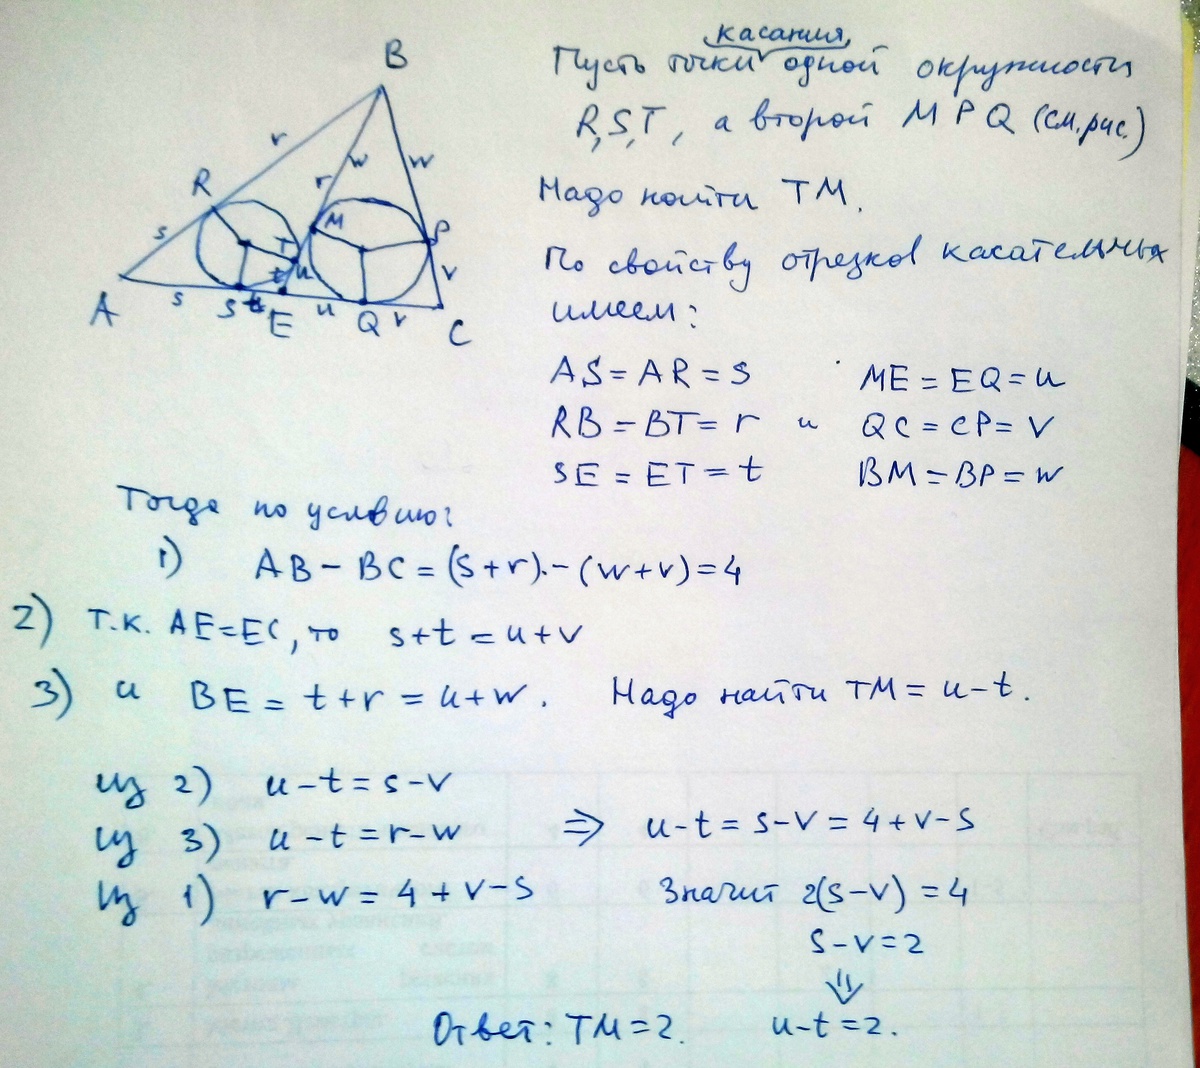 касания
Пусть точки одной окружности
R,S,T, а второй M P Q (см.рис.)
Надо найти TM.
По свойству отрезков касательных
имеем:
AS = AR = s
ME = EQ = u
RB = BT = r и QC = CP = v
SE = ET = t
BM = BP = w
B
r
w
w
r
R
M
P
s
T
t
u
v
A
s
S
t
E
u
Q
v
C
Тогда по условию:
1) AB - BC = (s+r) - (w+v) = 4
2) т.к. AE=EC, то s+t = u+v
3) и BE = t+r = u+w. Надо найти TM = u-t.
из 2) u-t = s-v
из 3) u-t = r-w ⇒ u-t = s-v = 4+v-s
из 1) r-w = 4+v-s Значит 2(s-v) = 4
s-v = 2
⇓
Ответ: TM = 2. u-t = 2.